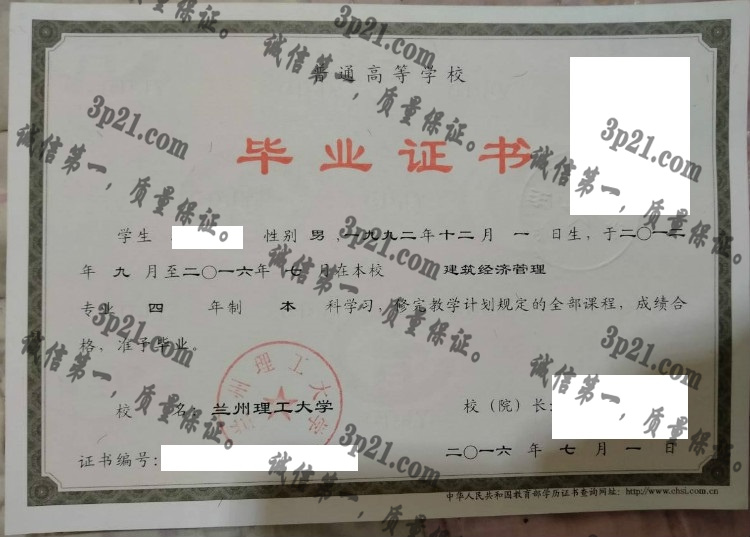 普通高等学校
毕业证书
学生 性别 男 ,一九九二年十二月 一 日生, 于二〇一二
年 九 月至二〇一六年 七 月在本校 建筑经济管理
专业 四 年制 本 科学习, 修完教学计划规定的全部课程, 成绩合
格, 准予毕业。
校 名: 兰州理工大学
校(院)长:
证书编号:
二〇一六 年 七 月 一 日
中华人民共和国教育部学历证书查询网址: http://www.chsi.com.cn
兰州理工大学
3p21.com
诚信第一，质量保证。
3p21.com
诚信第一，质量保证。
3p21.com
诚信第一，质量保证。
3p21.com
诚信第一，质量保证。
3p21.com
诚信第一，质量保证。
3p21.com
诚信第一，质量保证。
3p21.com
诚信第一，质量保证。
3p21.com
诚信第一，质量保证。
质量保证。